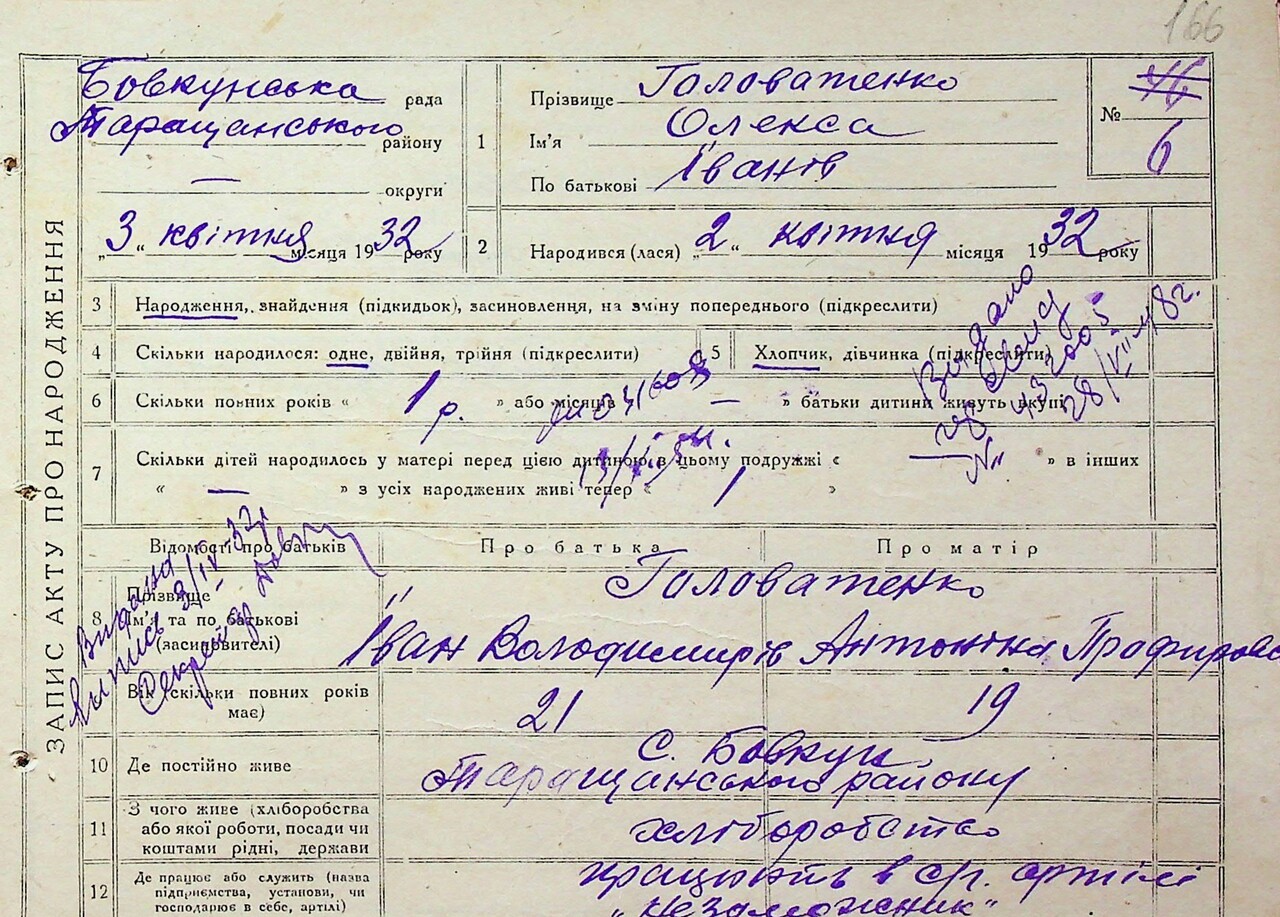 166
Бовкунська рада
Таращанського району
— округи
„3“ квітня місяця 1932 року
1 Прізвище Головатенко
Ім'я Олекса
По батькові Іванів
№ 46
6
2 Народився (лася) „2“ квітня місяця 1932 року
ЗАПИС АКТУ ПРО НАРОДЖЕННЯ
3 Народження, знайдення (підкидьок), засиновлення, на зміну попереднього (підкреслити)
4 Скільки народилося: одне, двійня, трійня (підкреслити)
5 Хлопчик, дівчинка (підкреслити)
6 Скільки повних років « 1 р. » або місяців — » батьки дитини живуть вкупі
7 Скільки дітей народилось у матері перед цією дитиною в цьому подружжі « — » в інших
« — » з усіх народжених живі тепер « 1 »
Видано
№ 43
28/VII 48г.
Відомості про батьків Про батька Про матір
8 Прізвище Головатенко
ім'я та по батькові
(засиновителі) Іван Володимирів Антоніна Профирова
Видана
випись 3/IV 32р
Секретар
Вік скільки повних років
має) 21 19
10 Де постійно живе с. Бовкун
Таращанського району
11 З чого живе (хліборобства
або якої роботи, посади чи
коштами рідні, держави хліборобство
12 Де працює або служить (назва
підприємства, установи, чи
господарює в себе, артілі) працюють в с/г. артілі
„Незаможник“